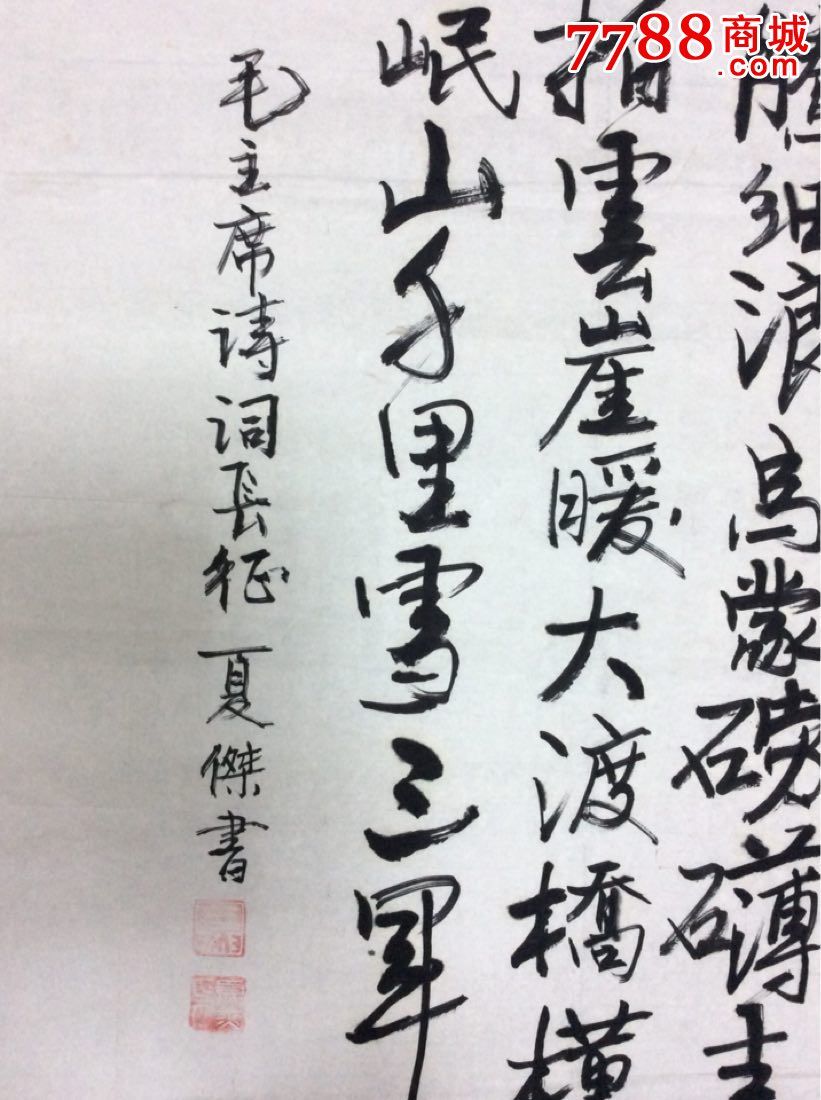 騰細浪烏蒙磅礴走
拍雲崖暖大渡橋橫
岷山千里雪三軍
毛主席诗词長征 夏傑書
7788商城
.com